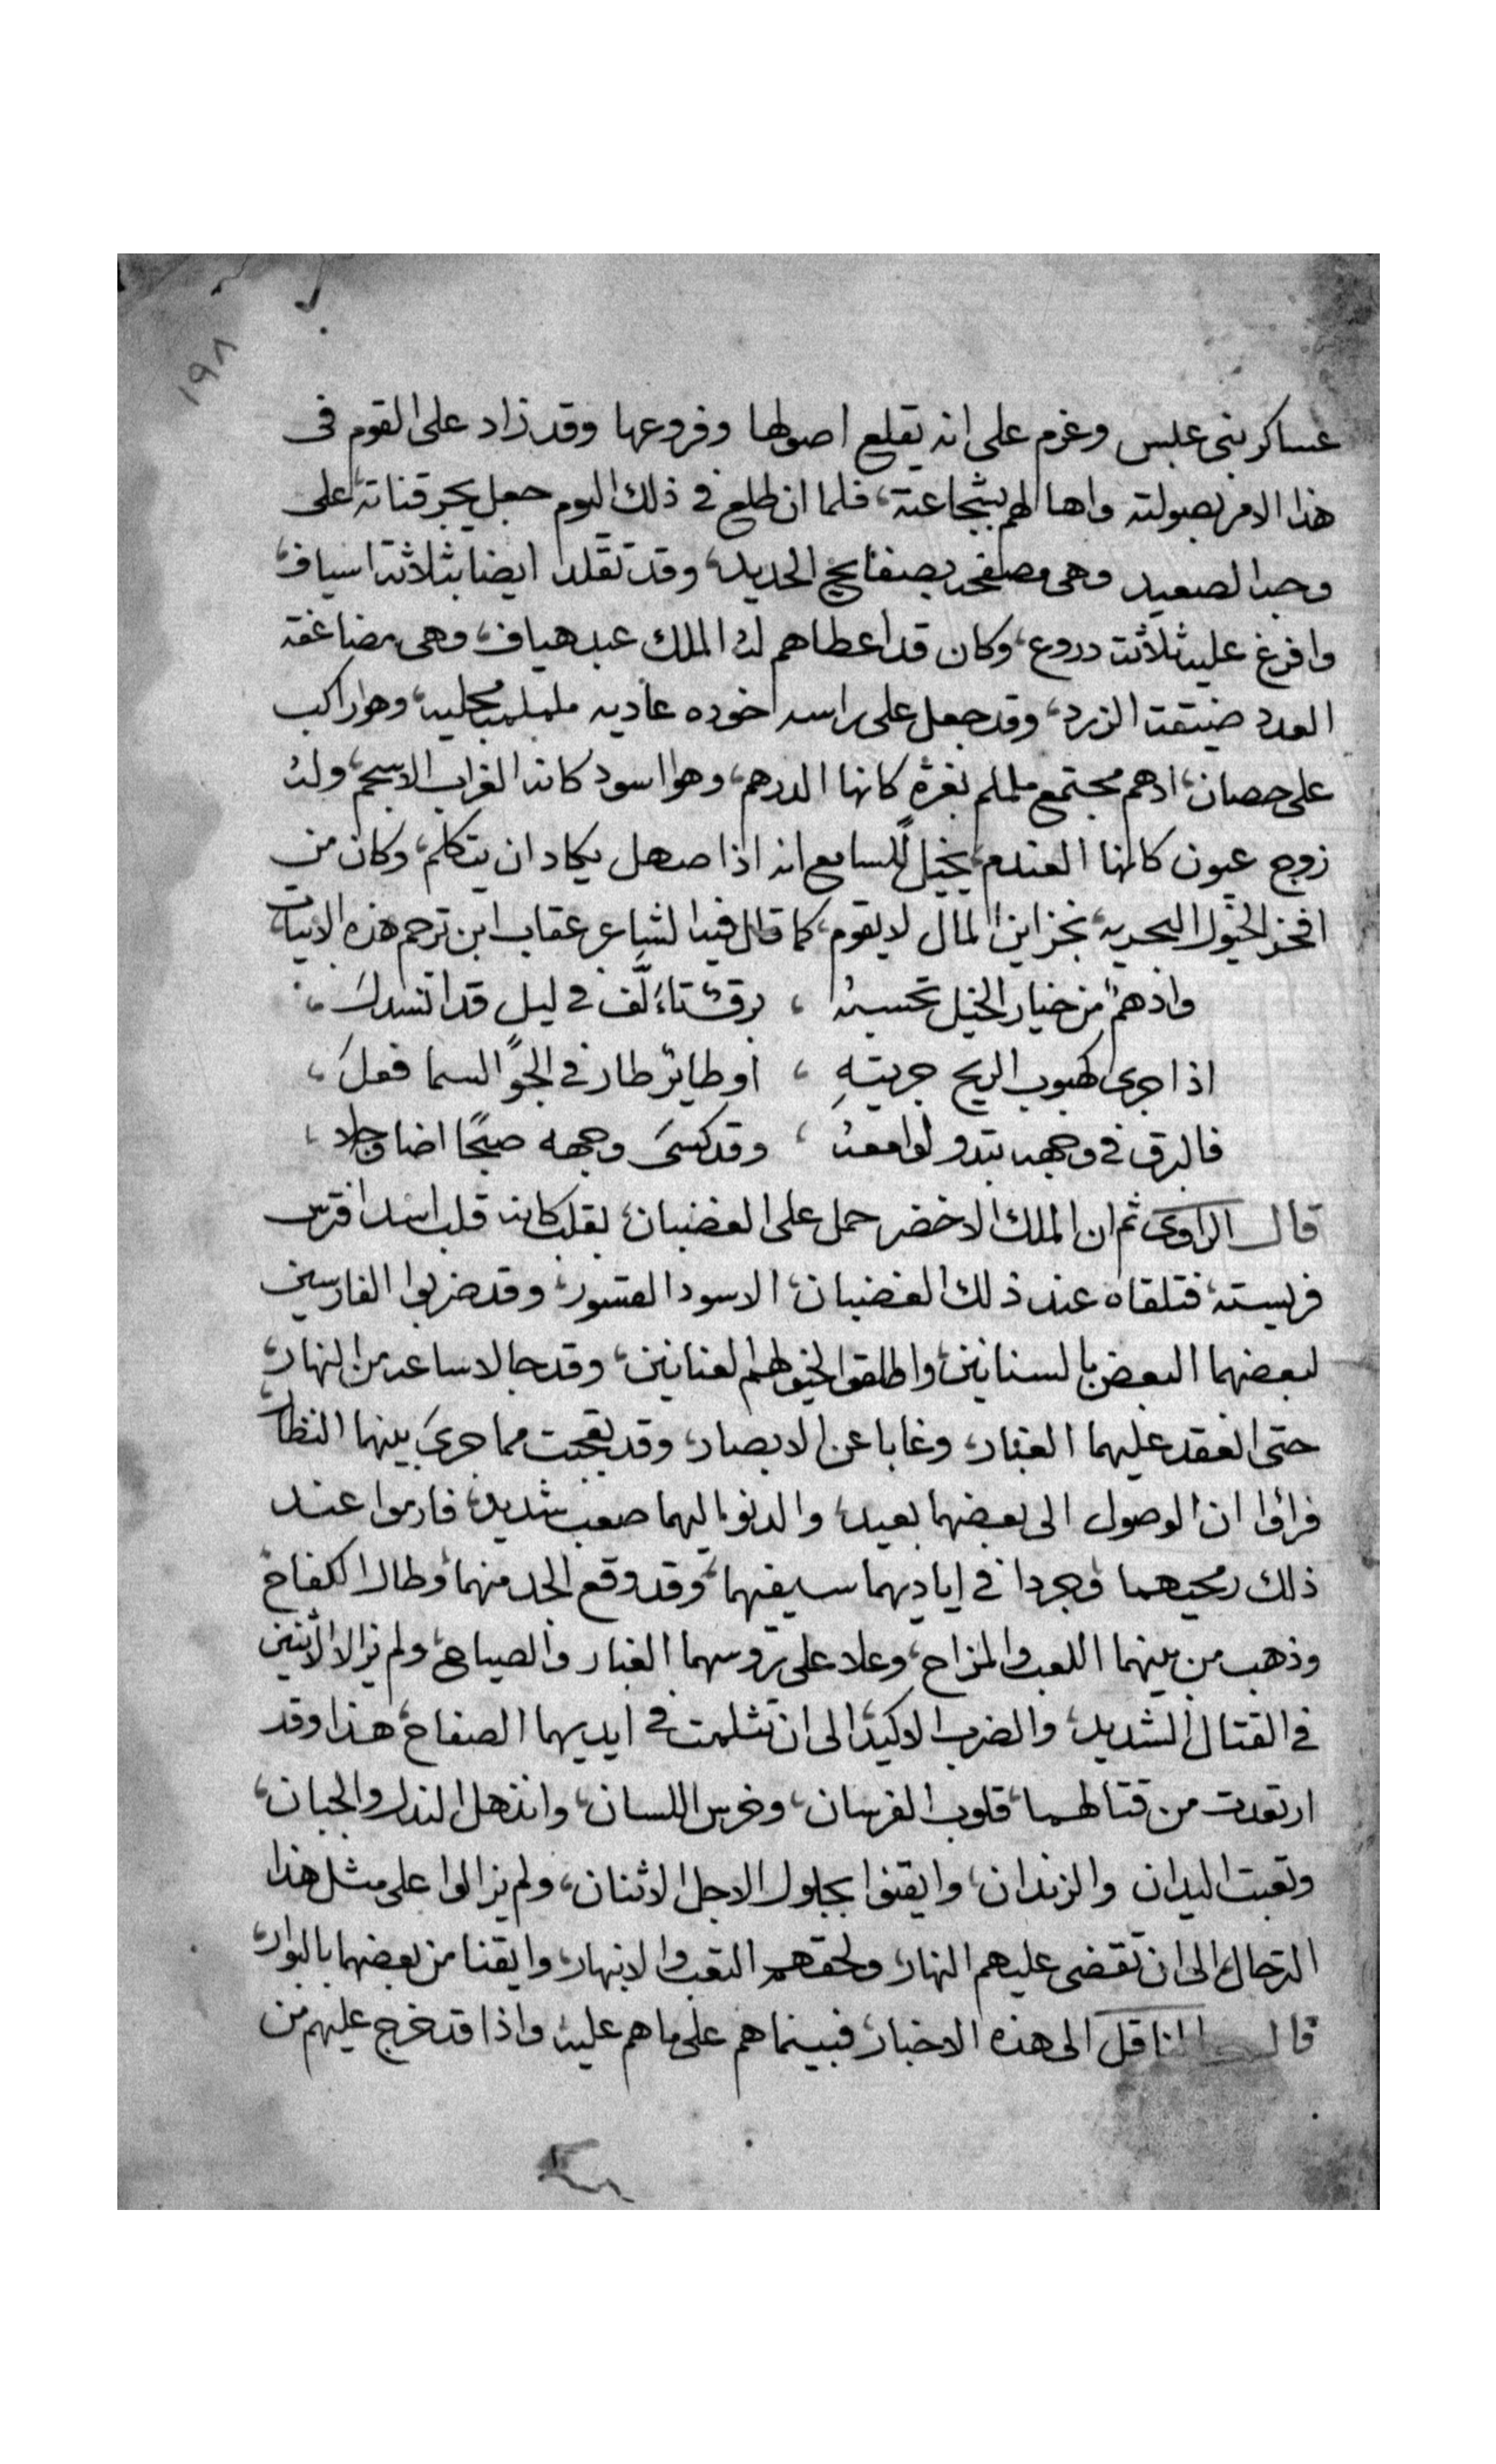 ١٩٨
عساكر بنى عبس وعزم على انه يقلع اصولها وفروعها وقد زاد على القوم فى
هذا الامر بصولته واهالهم بشجاعته، فلما ان طلع فى ذلك اليوم جعل يجر قناته على
وجه الصعيد وهى مصفحه بصفايح الحديد، وقد تقلد ايضا بثلاثة اسياف،
وافرغ عليه ثلاثت دروع، وكان قد اعطاهم له الملك عبد هياف، وهى مضاعفه
العدد ضيقت الزرد، وقد جعل على راسه خوده عاديه مجليه، وهو راكب
على حصان، ادهم مجتمع ململم بغرة كانها الدرهم، وهو اسود كانه الغراب الاسحم، وله
زوج عيون كانها العندم، يخيل للسامع انه اذا صهل يكاد ان يتكلم، وكان من
افخر الخيول البحريه، بخزاين المال لا يقوم، كما قال فيه الشاعر عقاب ابن ترجم هذه الابيات
وادهم من خيار الخيل تحسبه ، برق تاءلف فى ليل قد انسدل ،
اذا جرى كهبوب الريح جريته ، او طاير طار فى الجو السما فعل ،
فالبرق فى وجهه تبدو لوامعه ، وقد كسى وجهه صبحا اضا وجلا ،
قال الراوى ثم ان الملك الاخضر حمل على الغضبان، بقلب كانه قلب اسد افترس
فريسته، فتلقاه عند ذلك الغضبان، الاسود القسور، وقد ضربوا الفارسين
لبعضهما البعض بالسنانين، واطلقوا لخيولهم العنانين، وقد جالا ساعه من النهار،
حتى انعقد عليهما الغبار، وغابا عن الابصار، وقد تعجبت مما جرى بينهما النظار
فراوا ان الوصول الى بعضهما بعيد، والدنو اليهما صعب شديد، فارموا عند
ذلك رمحيهما وجردا فى اياديهما سيفهما، وقد وقع الجد منهما، وطال الكفاح
وذهب من بينهما اللعب والمزاح، وعلا على تروسهما الغبار والصياح، ولم يزالا الاثنين
فى القتال الشديد، والضرب الاكيد، الى ان تثلمت فى ايديهما الصفاح، هذا وقد
ارتعدت من قتالهما، قلوب الفرسان، وخرس اللسان، وانذهل النذل والجبان،
وتعبت اليدان والزندان، وايقنوا بحلول الاجل الاثنان، ولم يزالوا على مثل هذا
الترحال، الى ان تقضى عليهم النهار، ولحقهم التعب والانبهار، وايقنا من بعضهما بالبوار،
قال الناقل الى هذه الاخبار، فبينما هم على ما هم عليه، واذا قد خرج عليهم من